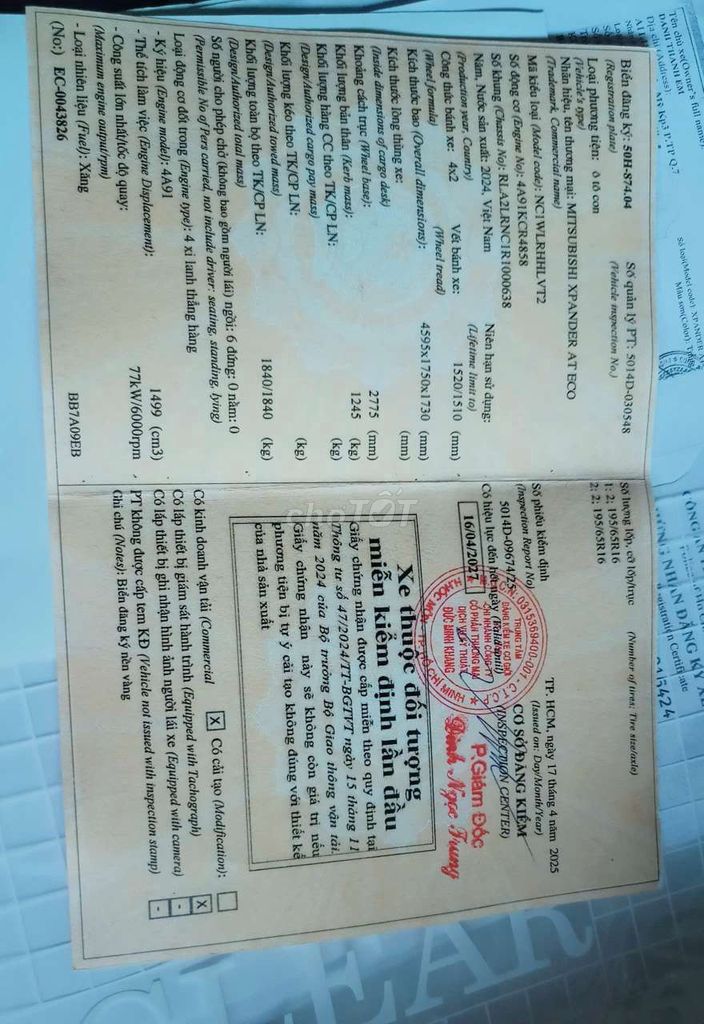 Biển đăng ký: 50H-874.04
(Registration plate)
Số quản lý PT: 5014D-030548
(Vehicle inspection No.)
Loại phương tiện: ô tô con
(Vehicle's type)
Nhãn hiệu, tên thương mại: MITSUBISHI XPANDER AT ECO
(Trademark, Commercial name)
Mã kiểu loại (Model code): NC1WLRHHLVT2
Số động cơ (Engine No): 4A91KCR4858
Số khung (Chassis No): RLA2LRNC1R1000638
Năm, Nước sản xuất: 2024, Việt Nam
Niên hạn sử dụng:
(Production year, Country)
(Lifetime limit to)
Công thức bánh xe: 4x2
Vết bánh xe: 1520/1510 (mm)
(Wheel formula)
(Wheel tread)
Kích thước bao (Overall dimensions): 4595x1750x1730 (mm)
Kích thước lòng thùng xe: (mm)
(Inside dimensions of cargo desk)
Khoảng cách trục (Wheel base): 2775 (mm)
Khối lượng bản thân (Kerb mass): 1245 (kg)
Khối lượng hàng CC theo TK/CP LN: (kg)
(Design/Authorized cargo pay mass)
Khối lượng kéo theo TK/CP LN: (kg)
(Design/Authorized towed mass)
Khối lượng toàn bộ theo TK/CP LN: 1840/1840 (kg)
(Design/Authorized total mass)
Số người cho phép chở (không bao gồm người lái) ngồi: 6 đứng: 0 nằm: 0
(Permissible No of Pers carried, not include driver: seating, standing, lying)
Loại động cơ đốt trong (Engine type): 4 xi lanh thẳng hàng
- Ký hiệu (Engine model): 4A91
- Thể tích làm việc (Engine Displacement): 1499 (cm3)
- Công suất lớn nhất/tốc độ quay: 77kW/6000rpm
(Maximum engine output/rpm)
- Loại nhiên liệu (Fuel): Xăng
(No:) EC-0043826
BB7A09EB
Số lượng lốp, cỡ lốp/trục
(Number of tires; Tire size/axle)
1: 2; 195/65R16
2: 2; 195/65R16
Số phiếu kiểm định
(Inspection Report No)
5014D-09674/25
Có hiệu lực đến hết ngày (Valid until)
16/04/2027
TP. HCM, ngày 17 tháng 4 năm 2025
(Issued on: Day/Month/Year)
CƠ SỞ ĐĂNG KIỂM
(INSPECTION CENTER)
P.Giám Đốc
Đinh Ngọc Trung
0315369400-001 C.T.C.P
TRUNG TÂM
ĐĂNG KIỂM XE CƠ GIỚI
CHI NHÁNH CÔNG TY
CỔ PHẦN THƯƠNG MẠI
ĐỨC MINH KHANG
Xe thuộc đối tượng
miễn kiểm định lần đầu
Giấy chứng nhận được cấp miễn theo quy định tại
Thông tư số 47/2024/TT-BGTVT ngày 15 tháng 11
năm 2024 của Bộ trưởng Bộ Giao thông vận tải.
Giấy chứng nhận này sẽ không còn giá trị nếu
phương tiện bị tự ý cải tạo không đúng với thiết kế
của nhà sản xuất
Có kinh doanh vận tải (Commercial X Có cải tạo (Modification):
Có lắp thiết bị giám sát hành trình (Equipped with Tachograph) X
Có lắp thiết bị ghi nhận hình ảnh người lái xe (Equipped with camera) -
PT không được cấp tem KĐ (Vehicle not issued with inspection stamp) -
Ghi chú (Notes): Biển đăng ký nền vàng
chợTỐT
Tên chủ xe(Owner's full name)
DANH THANH EM
Địa chỉ (Address)
Số loại(Model code): XPANDER AT
Màu sơn(Color):
CLEAR